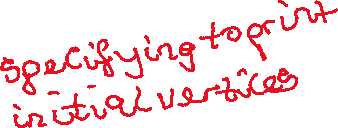 specifying to print
initial vertices